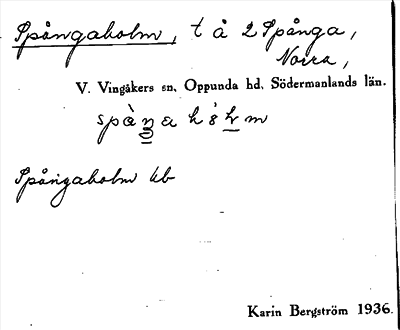 Spångaholm, t å 2 Spånga,
Norra,
V. Vingåkers sn, Oppunda hd, Södermanlands län.
Spångaholm kb
Karin Bergström 1936.